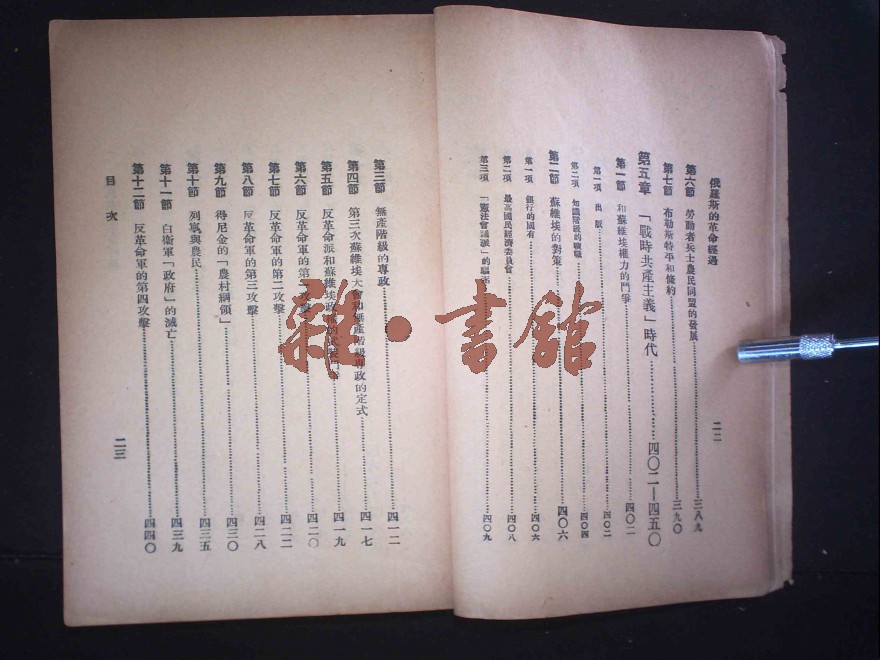 俄羅斯的革命經過
第六節 勞動者兵士農民同盟的發展……三八九
第七節 布勒斯特平和條約……三九〇
第五章 「戰時共產主義」時代……四〇二—四五〇
第一節 和蘇維埃權力的鬥爭……四〇二
第一項 出版……四〇二
第二項 知識階級的職……四〇四
第二節 蘇維埃的對策……四〇六
第一項 銀行的國有……四〇六
第二項 最高國民經濟委員會……四〇八
第三項 「憲法會議派」的……四〇九
二二
第三節 無產階級的專政……四一二
第四節 第三次蘇維埃大會和無產階級專政的定式……四一七
第五節 反革命派和蘇維埃政……四一九
第六節 反革命軍的第一攻擊……四二〇
第七節 反革命軍的第二攻擊……四二二
第八節 反革命軍的第三攻擊……四二八
第九節 得尼金的「農村綱領」……四三〇
第十節 列寧與農民……四三五
第十一節 白衛軍「政府」的滅亡……四三九
第十二節 反革命軍的第四攻擊……四四〇
目次
二三
雜·書館